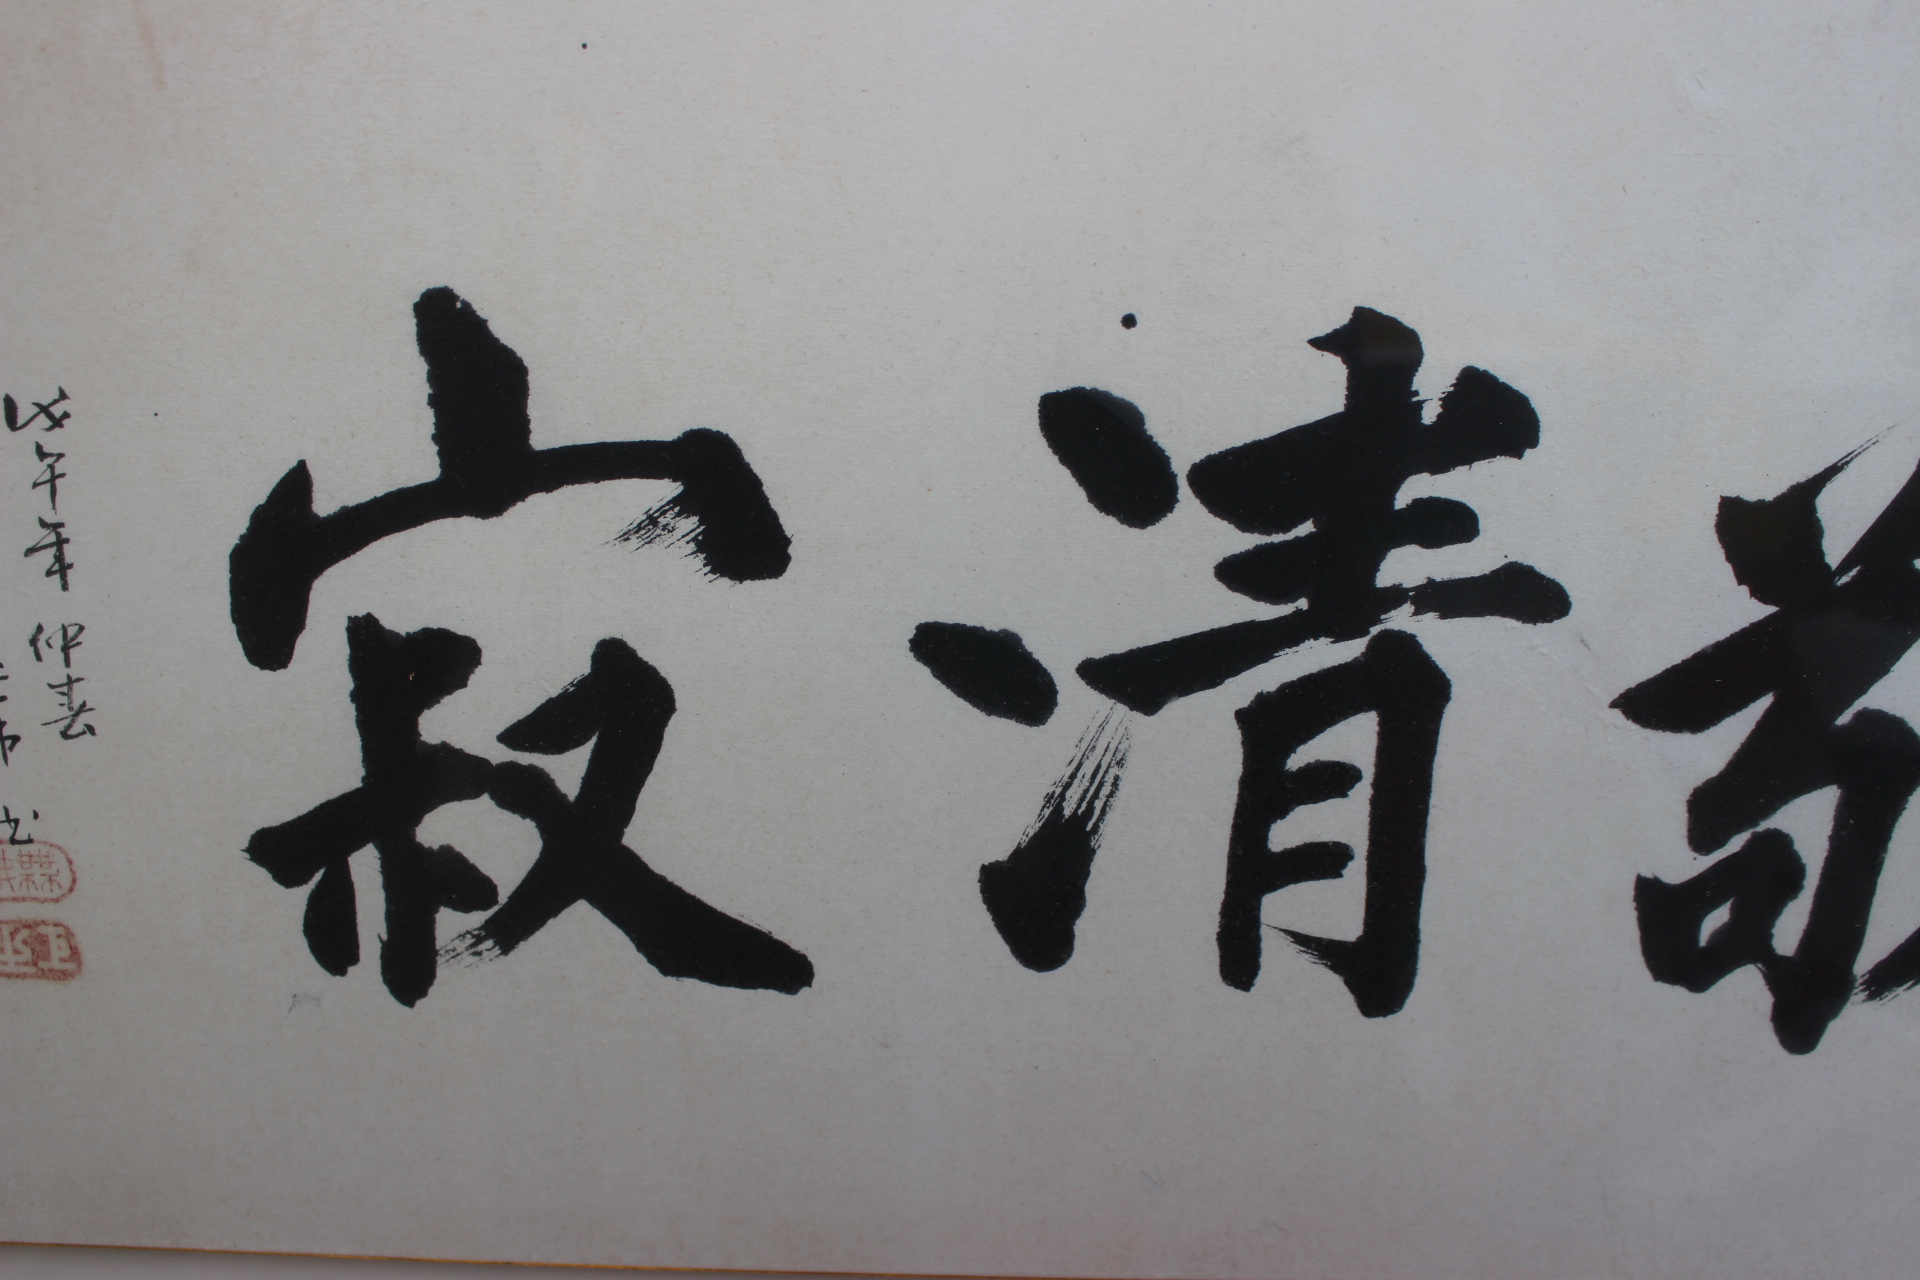 敬清寂
戊午年 仲春
书